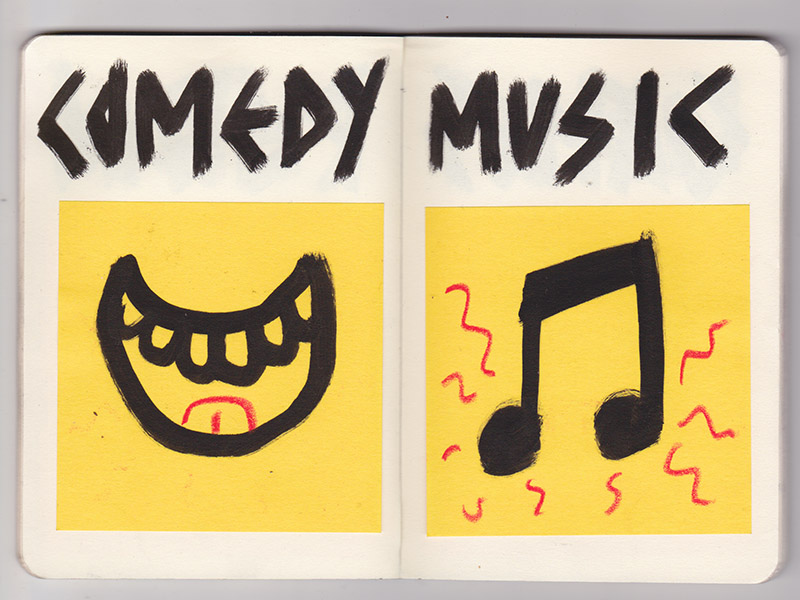 COMEDY
MUSIC